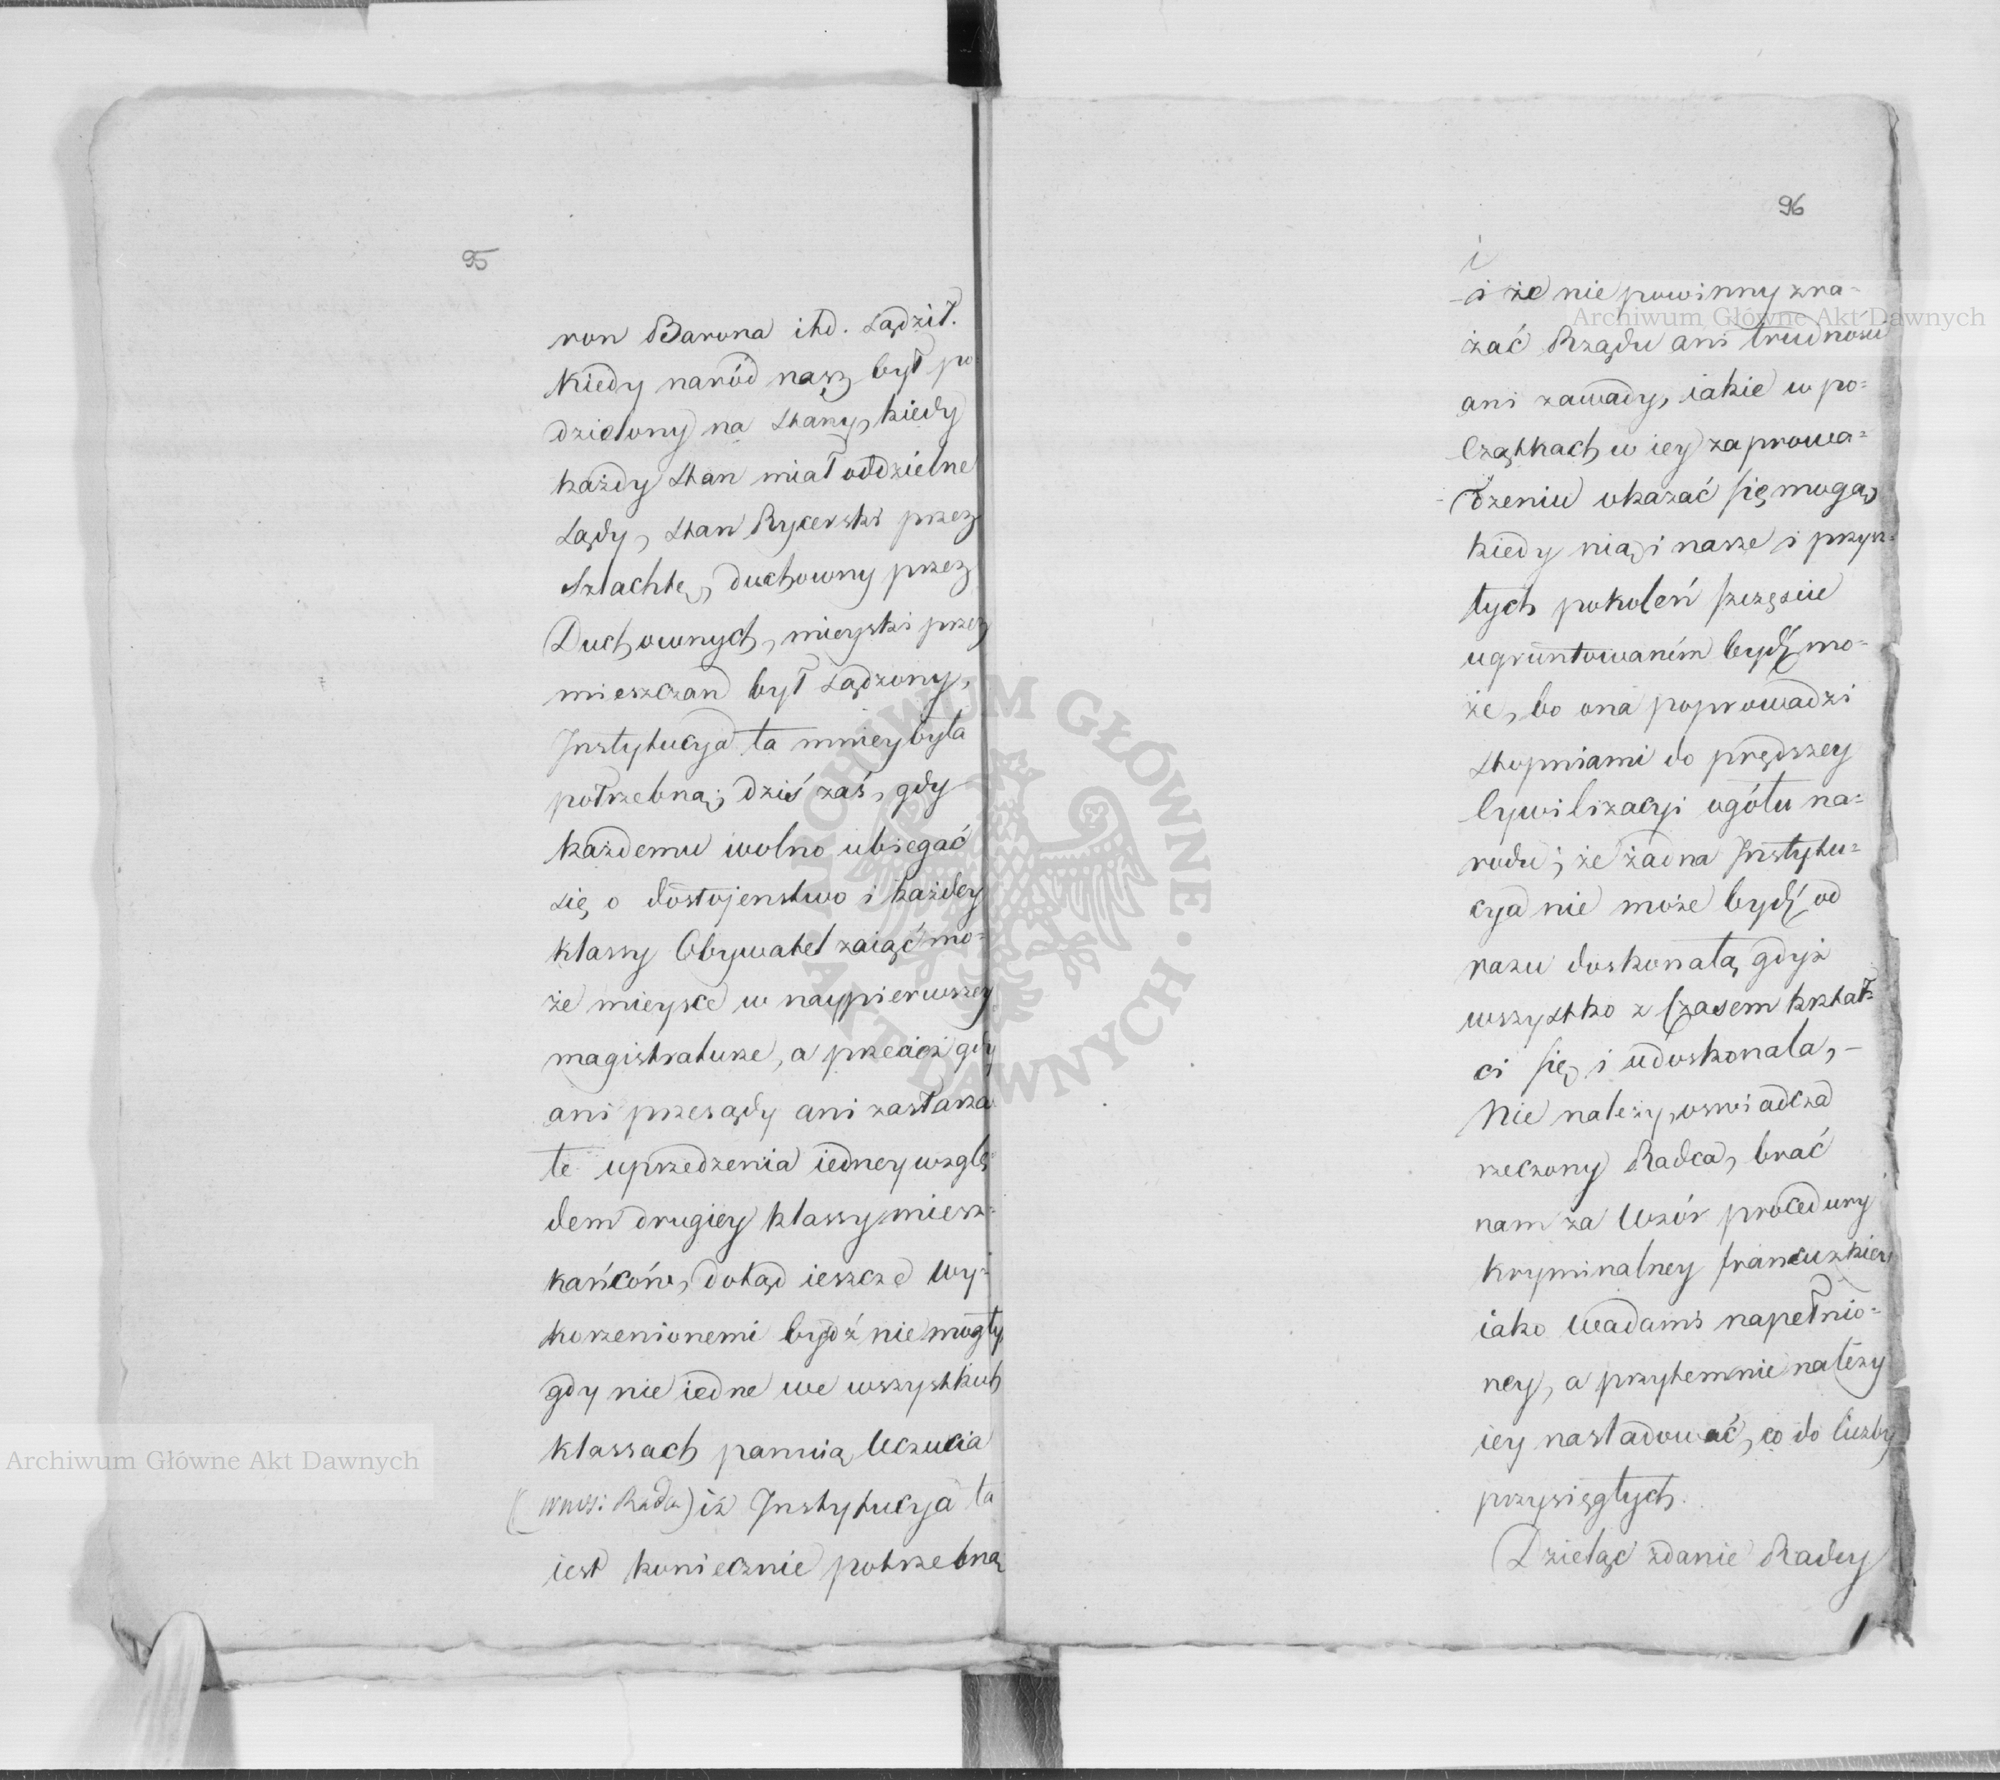 95
ron Barona itd. sądził.
Kiedy naród nasz był po
dzielony na stany, kiedy
każdy stan miał oddzielne
sądy, stan Rycerski przez
Szlachtę, duchowny przez
Duchownych, mieyski przez
mieszczan był sądzony,
Instytucya ta mniey była
potrzebną; dziś zaś, gdy
każdemu wolno ubiegać
się o dostojenstwo i każdey
klassy Obywatel zaiąć mo=
że mieysce w naypierwszey
magistraturze, a przecież gdy
ani przesądy ani zastarza
łe uprzedzenia iedney wzglę=
dem drugiey klassy miesz=
kańców, dotąd ieszcze wy=
korzenionemi bydź nie mogły
gdy nie iedne we wszystkich
klassach panuią Uczucia
(wnosi Rada) iż Instytucya ta
iest koniecznie potrzebną
96
i
i że nie powinny zra=
żać Rządu ani trudności
ani zawady, iakie w po=
Czątkach w iey zaprowa=
dzeniu okazać się mogą,
kiedy nią i nasze i przysz=
łych pokoleń szczęście
ugruntowaném bydź mo=
że, bo ona poprowadzi
stopniami do prędszey
Cywilizacyi ogółu na=
rodu; że żadna Instytu=
cya nie może bydź od
razu doskonałą gdyż
wszystko z Czasem kształ=
ci się i udoskonala, –
Nie należy, oswiadcza
rzeczony Radca, brać
nam za Wzór procedury
kryminalney francuzkiey
iako Wadami napełnio=
ney, a przytem nie należy
iey nasladować, co do liczby
przysięgłych.
Dzieląc zdanie Radcy
Archiwum Główne Akt Dawnych
Archiwum Główne Akt Dawnych
ARCHIWUM GŁÓWNE · AKT DAWNYCH ·